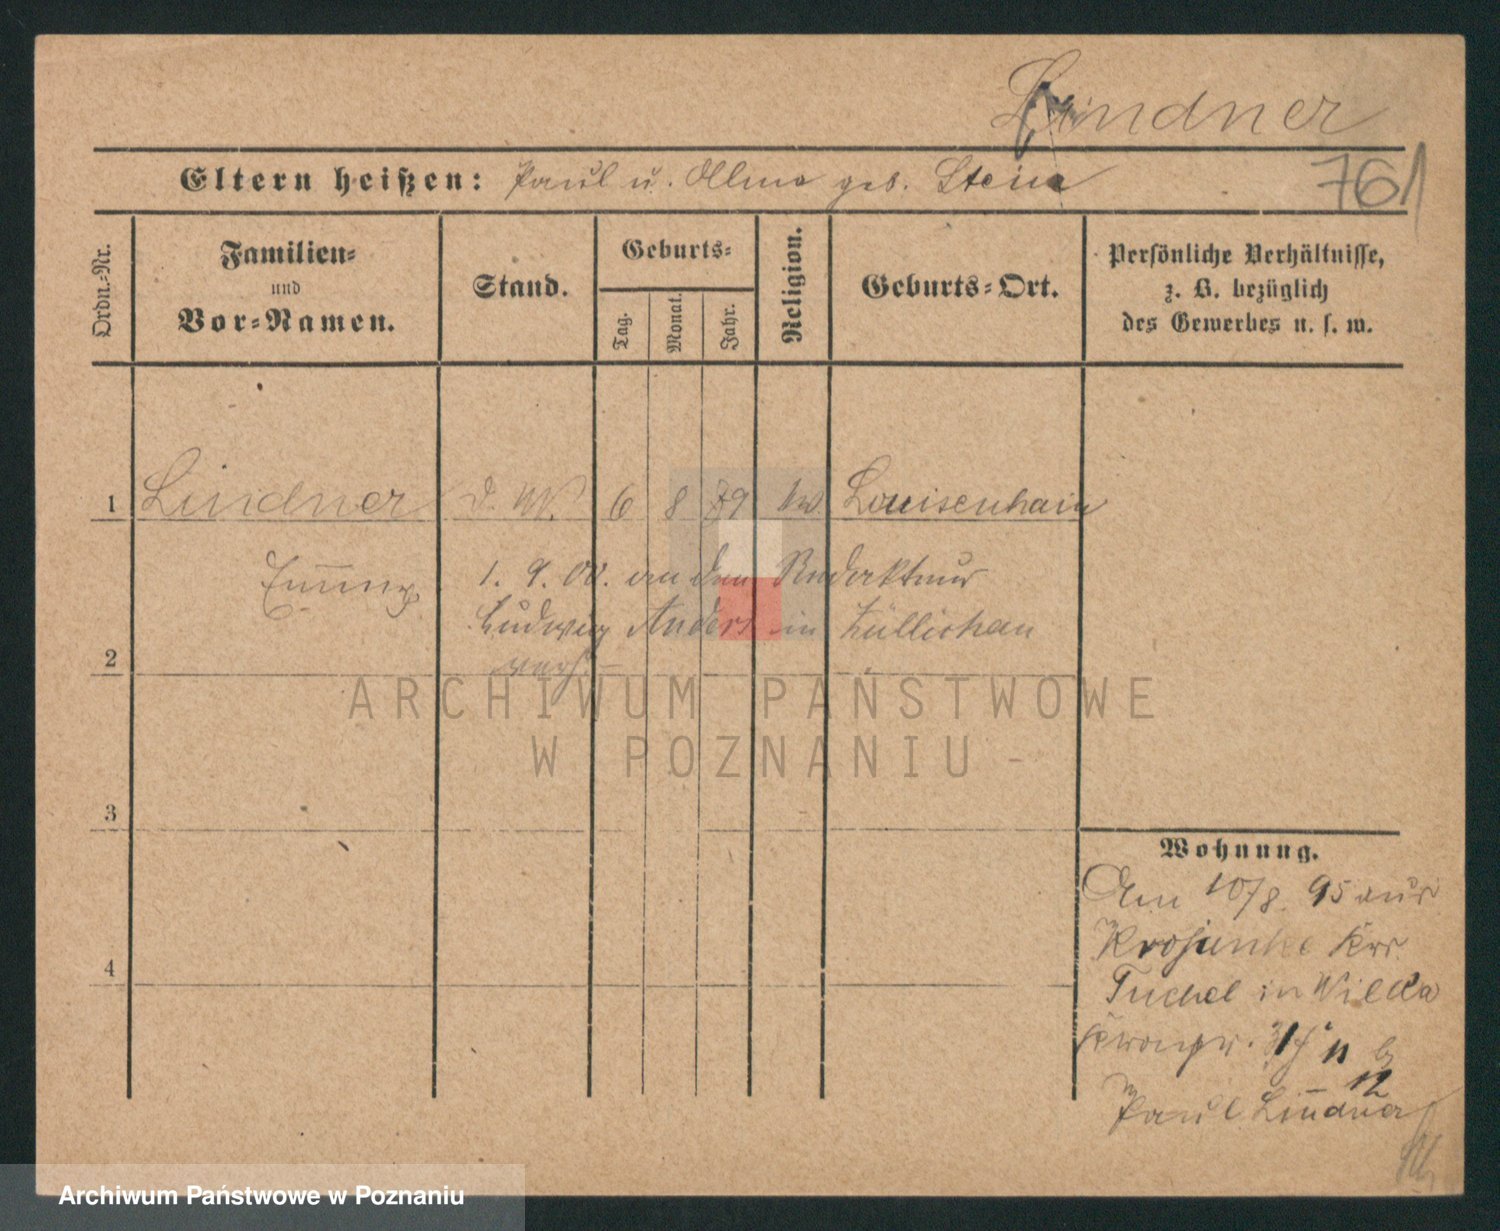 Lindner
761
Eltern heißen: Paul u. Alma geb. Stein
Ordn.-Nr.
Familien-
und
Vor-Namen.
Stand.
Geburts-
Tag.
Monat.
Jahr.
Religion.
Geburts-Ort.
Persönliche Verhältnisse,
z. B. bezüglich
des Gewerbes u. s. w.
1 Lindner d. W. 6 8 79 Louisenhain
Emmy
1. 9. 00. an den Redakteur
Ludwig Anders in Züllichau
verh.
2
3
4
Wohnung.
Am 10/8. 95 aus
Krojanke Krs.
Tuchel in Wilda
Kronpr. 11
12
Paul Lindner
ARCHIWUM PAŃSTWOWE
W POZNANIU
Archiwum Państwowe w Poznaniu